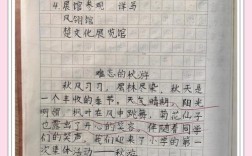 4 展馆参观 详写
凤翎馆
楚文化展览馆
难忘的秋游
秋风习习，层林尽染，秋天是
一个丰收的季节，天气晴朗，阳光
明媚，枫叶在风中跳舞，菊花仙子
也露出了开心的笑容，伴随着同学
们的笑声，我们迎来了小学的第一
次集体活动——秋游